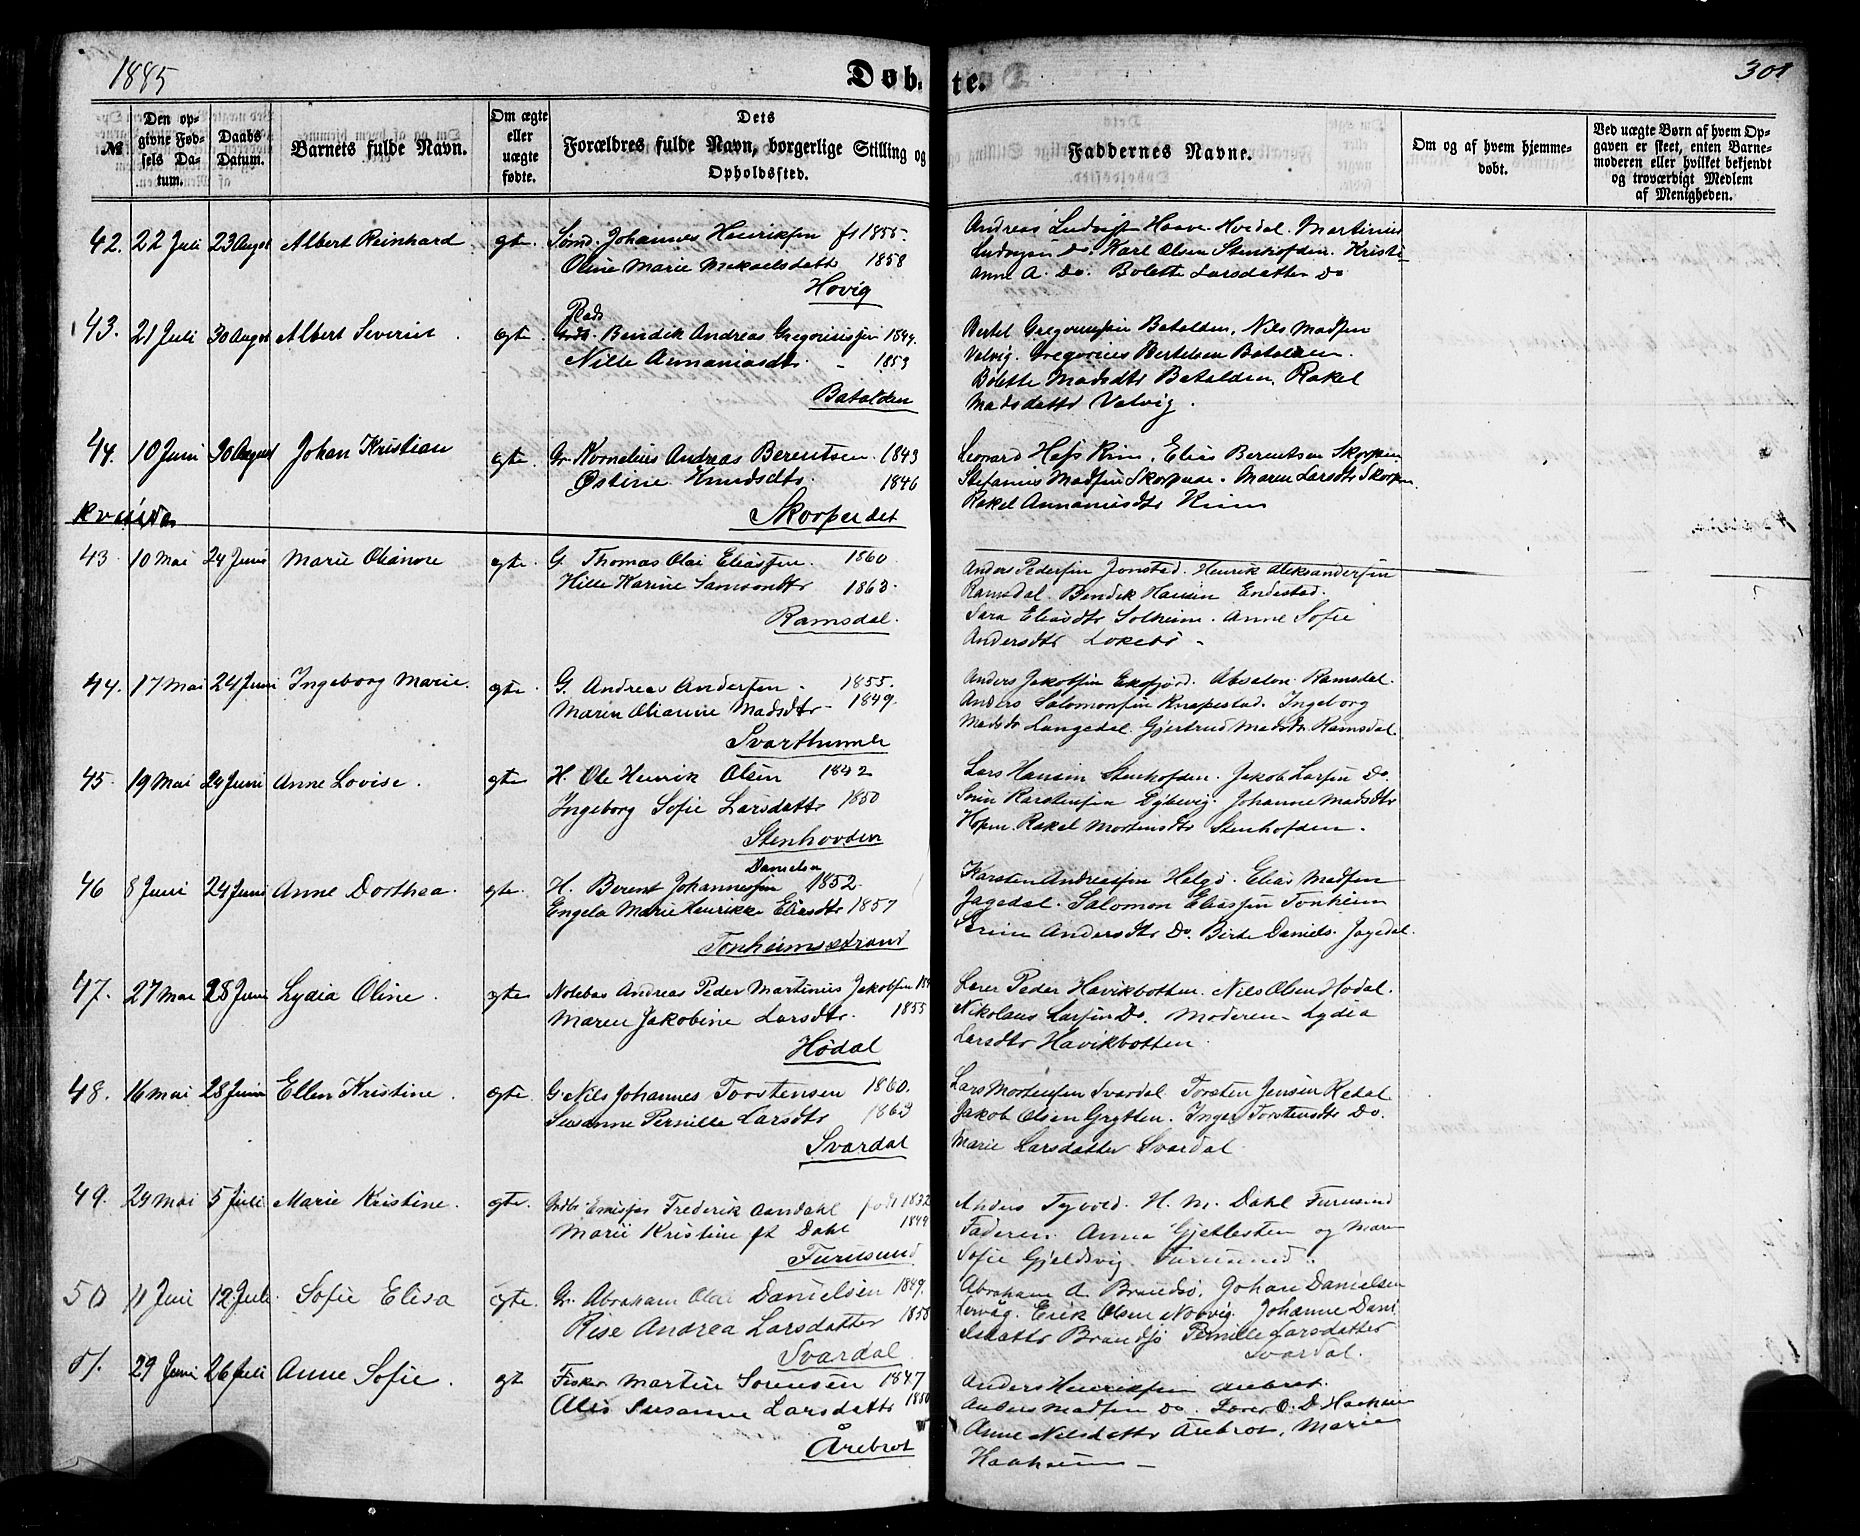 1885 Døbte. 301
№ Den opgivne Fødsels Datum. Daabs Datum. Barnets fulde Navn. Om ægte eller uægte fødte. Dets Forældres fulde Navn, borgerlige Stilling og Opholdssted. Faddernes Navne. Om og af hvem hjemmedøbt. Ved uægte Børn af hvem Opgaven er skeet, enten Barnemoderen eller hvilket bekjendt og troværdigt Medlem af Menigheden.
42. 22 Juli 23 August Albert Reinhard gte. Sømd. Johannes Henriksen ft 1855.
Oline Marie Mekaelsdatt 1858
Hovig
Andreas Ludvigt Haave Hovdal. Martinius
Ludvigsen Do. Karl Olsen Stenhofden. Kristi-
anne A. Do. Bolette Larsdatter Do
43. 21 Juli 30 August Albert Severin ogte. Plads
Grdb. Bendik Andreas Gregoriussen 1844.
Nille Annaniasdtr. - 1853
Batalden
Bertel Gregoriussen Batalden, Nils Madsen
Valvig. Gregorius Bertelsen Batalden.
Bolette Madsdtr Batalden, Rakel
Madsdatter Valvig.
44. 10 Juni 30 August Johan Kristian ogte. Gr. Kornelius Andreas Berentsen. 1843
Østine Knudsdtr. 1846
Skorpe det
Leonard Hess Rim, Elias Berentsen Skorpen
Stefanus Madsen Skorpene. Maren Larsdtr Skorpen
Rakel Annaniasdtr Rim
Kvinder
43 10 Mai 24 Juni Marie Olianne ogte. G. Thomas Olai Eliassen. 1860
Hille Karine Samsondtr 1863.
Ramsdal.
Anders Pedersen Jonstad. Henrik Aleksandersen
Ramsdal. Bendik Hansen Endestad.
Sara Eliasdtr Solheim. Anne Sofie
Andersdtr Lokebø -
44. 17 Mai 24 Juni Ingeborg Marie. ogte. G. Andreas Andersen. 1855.
Maren Olianne Madsdtr - 1849.
Svarthumle
Anders Jakobsen Eksfjord. Absalon Ramsdal.
Anders Salomonsen Knapestad. Ingeborg
Madsdtr Langedal. Gjertrud Madsdtr Ramsdal.
45. 19 Mai 24 Juni Anne Lovise. ogte H. Ole Henrik Olsen 1842
Ingeborg Sofie Larsdattr 1850
Stenhovden
Lars Hansen Stenhofden. Jakob Larsen Do.
Sørin Karstensen Dybevig. Johanne Madsdtr
Hopen. Rakel Mortensdtr Stenhofden.
46 8 Juni 24 Juni Anne Dorthea. gte. Danielsen
H. Berent Johannessen 1852.
Engela Marie Henrikke Eliasdtr 1857
Tonheimsstrand
Karsten Andreassen Helgø. Elias Madsen
Jagedal. Salomon Eliassen Tonheim
Serine Andersdtr Do. Birte Daniels. Jagedal.
47. 27 Mai 28 Juni Lydia Oline. ogte Notebas Andreas Peder Martinus Jakobsen
Maren Jakobine Larsdtr. 1855
Hødal
Lærer Peder Havikbotten. Nils Olsen Hødal.
Nikolaus Larsen Do. Moderen - Lydia
Larsdtr Havikbotten.
48. 16 Mai 28 Juni Ellen Kristine. ogte. G. Nils Johannes Torstensen 1860.
Susanne Pernille Larsdtr 1863
Svardal
Lars Mortensen Svardal. Torsten Jensen Redal
Jakob Olsen Grytten. Inger Torstensdtr Do.
Marie Larsdatter Svardal
49. 24 Mai 5 Juli Marie Kristine. ogte. Grdbr. Frederik Aandahl født 1832
Marie Kristine ft Dahl 1849
Furusund
Anders Tyvold. H. M. Dahl Furusund
Faderen. Anna Gjetlesten og Maren
Sofie Gjeldsvig. Furusund.
50 11 Juni 12 Juli. Sofie Elisa ogte. Gr. Abraham Olai Danielsen 1849.
Rise Andrea Larsdatter 1858
Svardal.
Abraham A. Brandsø, Johan Danielsen
Lervåg. Erik Olsen Norvig. Johanne Dani-
elsdatter Brandsø Pernille Larsdatter
Svardal.
51. 29 Juni 26 Juli Anne Sofie. gt Fisker Martin Sørensen 1847
Alis Susanne Larsdattr 1850
Årebrot
Anders Henriksen Årebrot.
Anders Madsen Do. Lærer O. D. Haaheim
Anne Nilsdattr Årebrot, Marie
Haaheim -